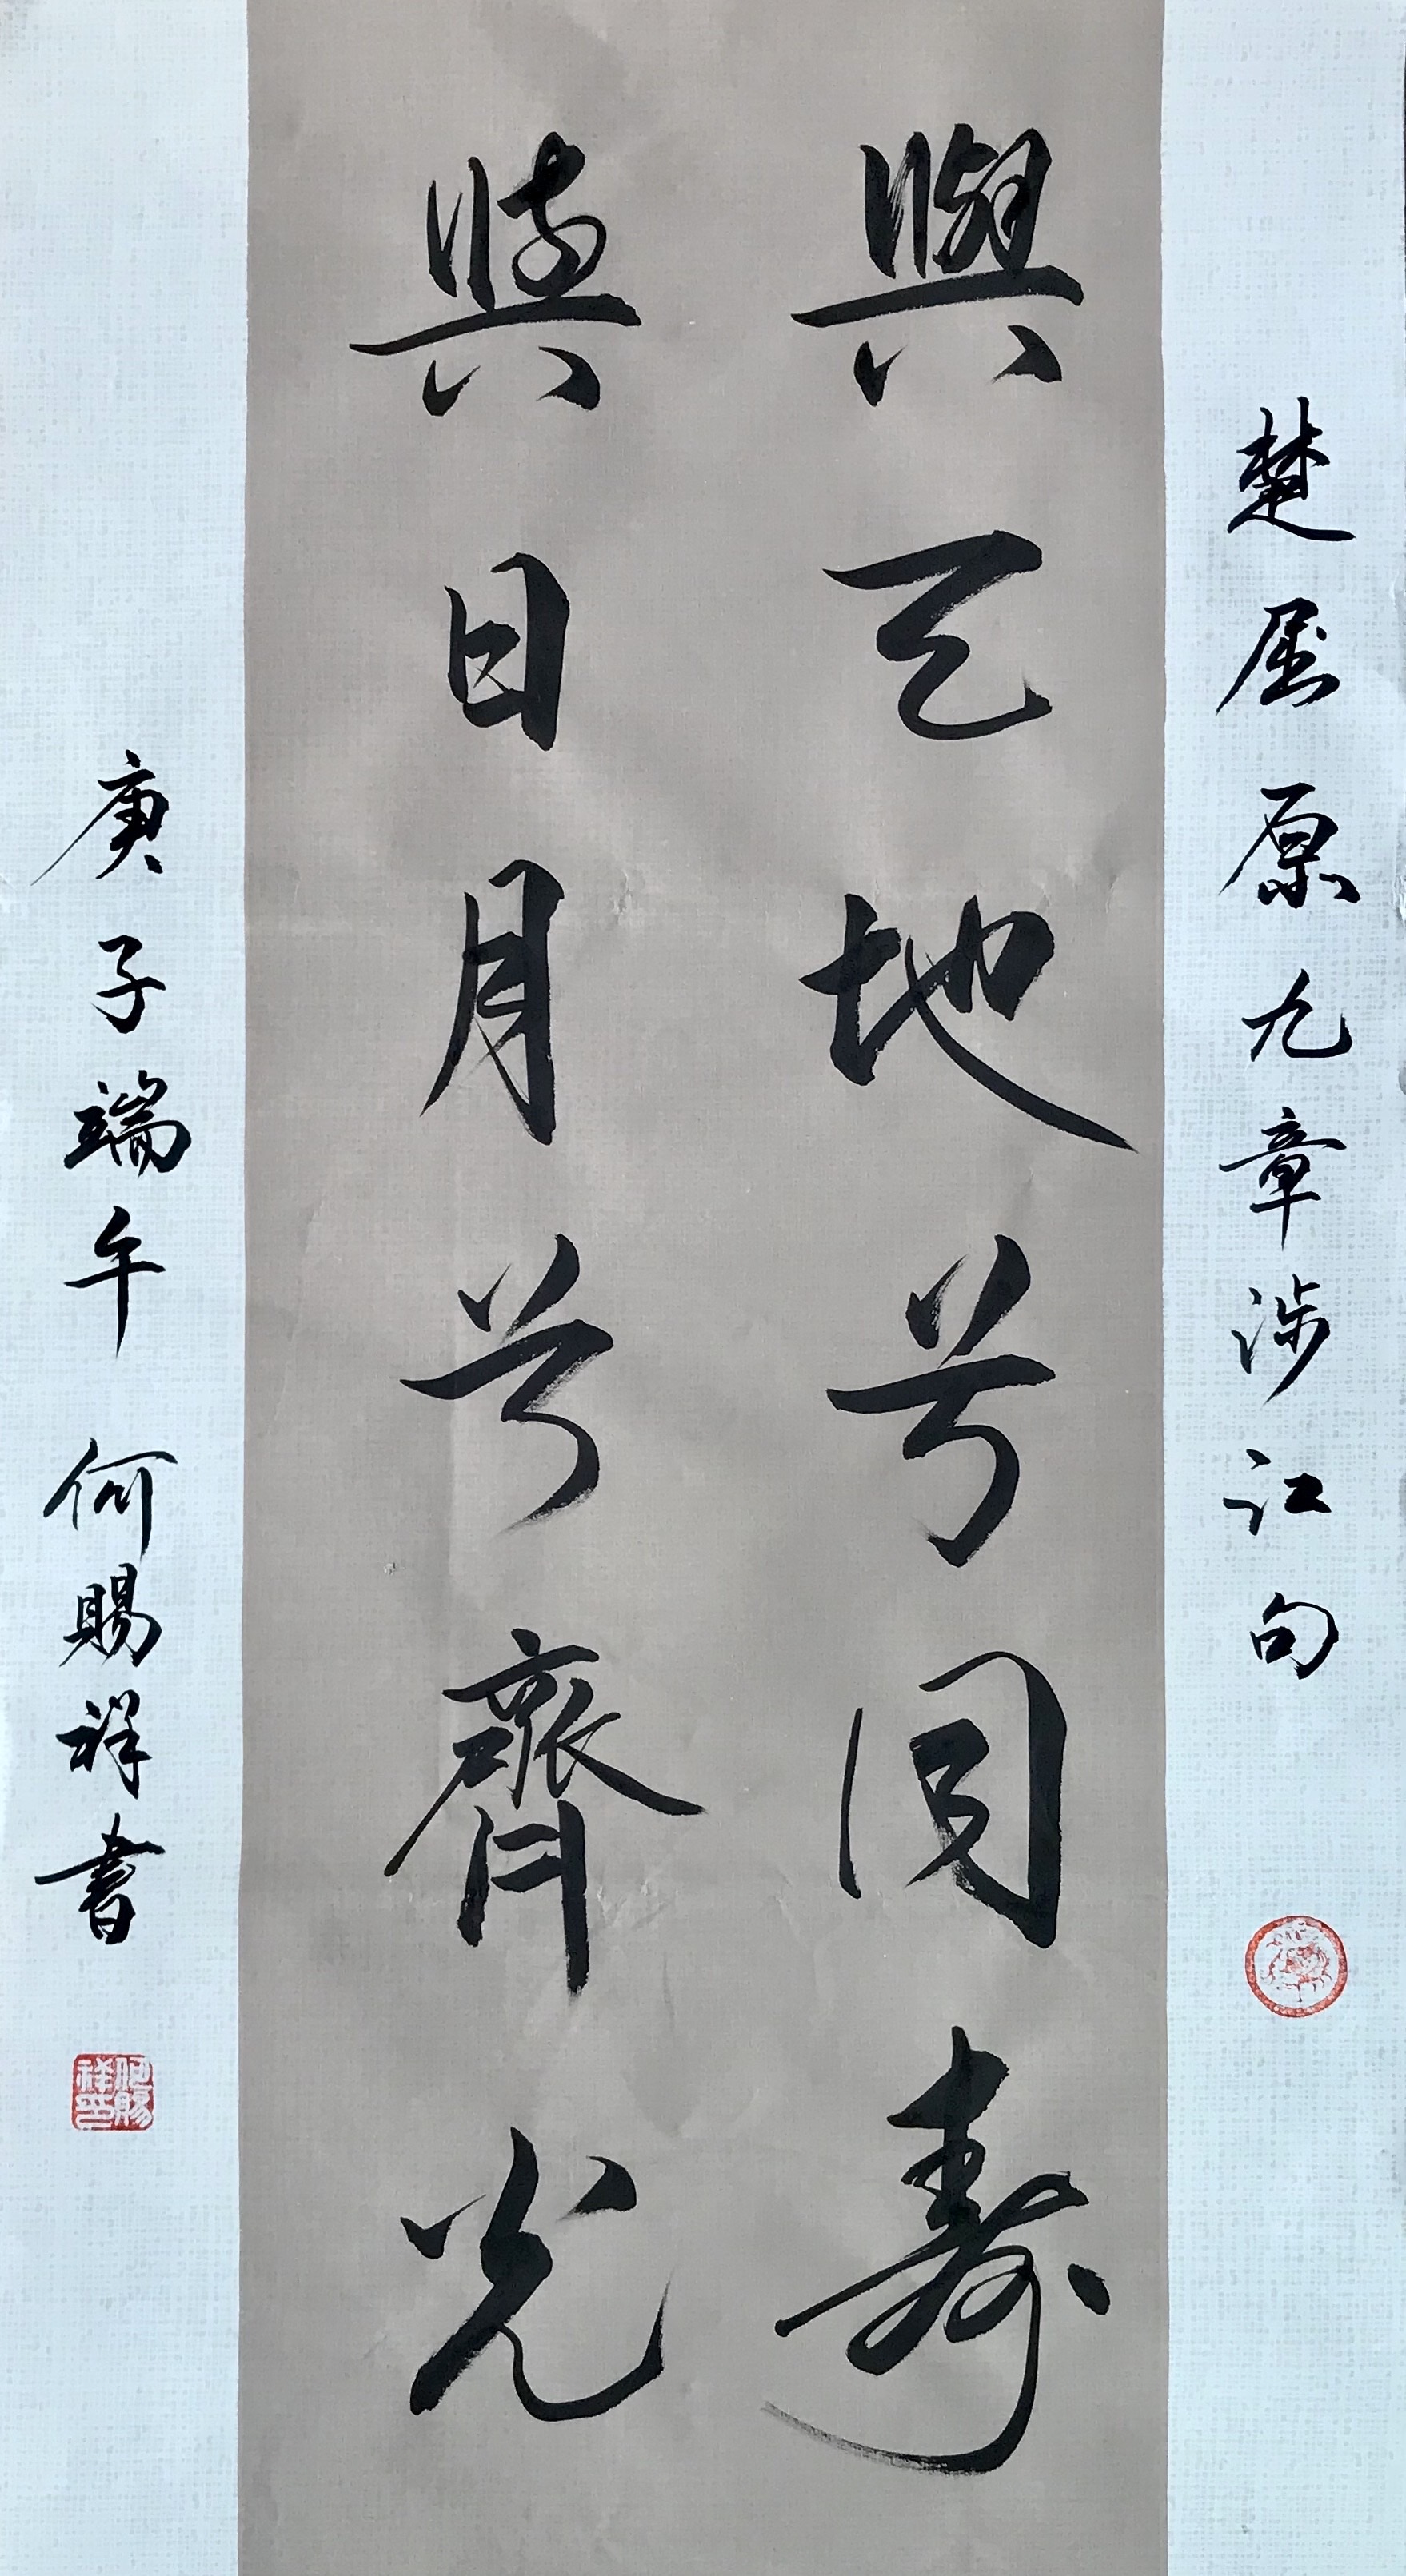 楚屈原九章涉江句
與天地兮同壽
與日月兮齊光
庚子端午 何賜祥書
何賜祥印